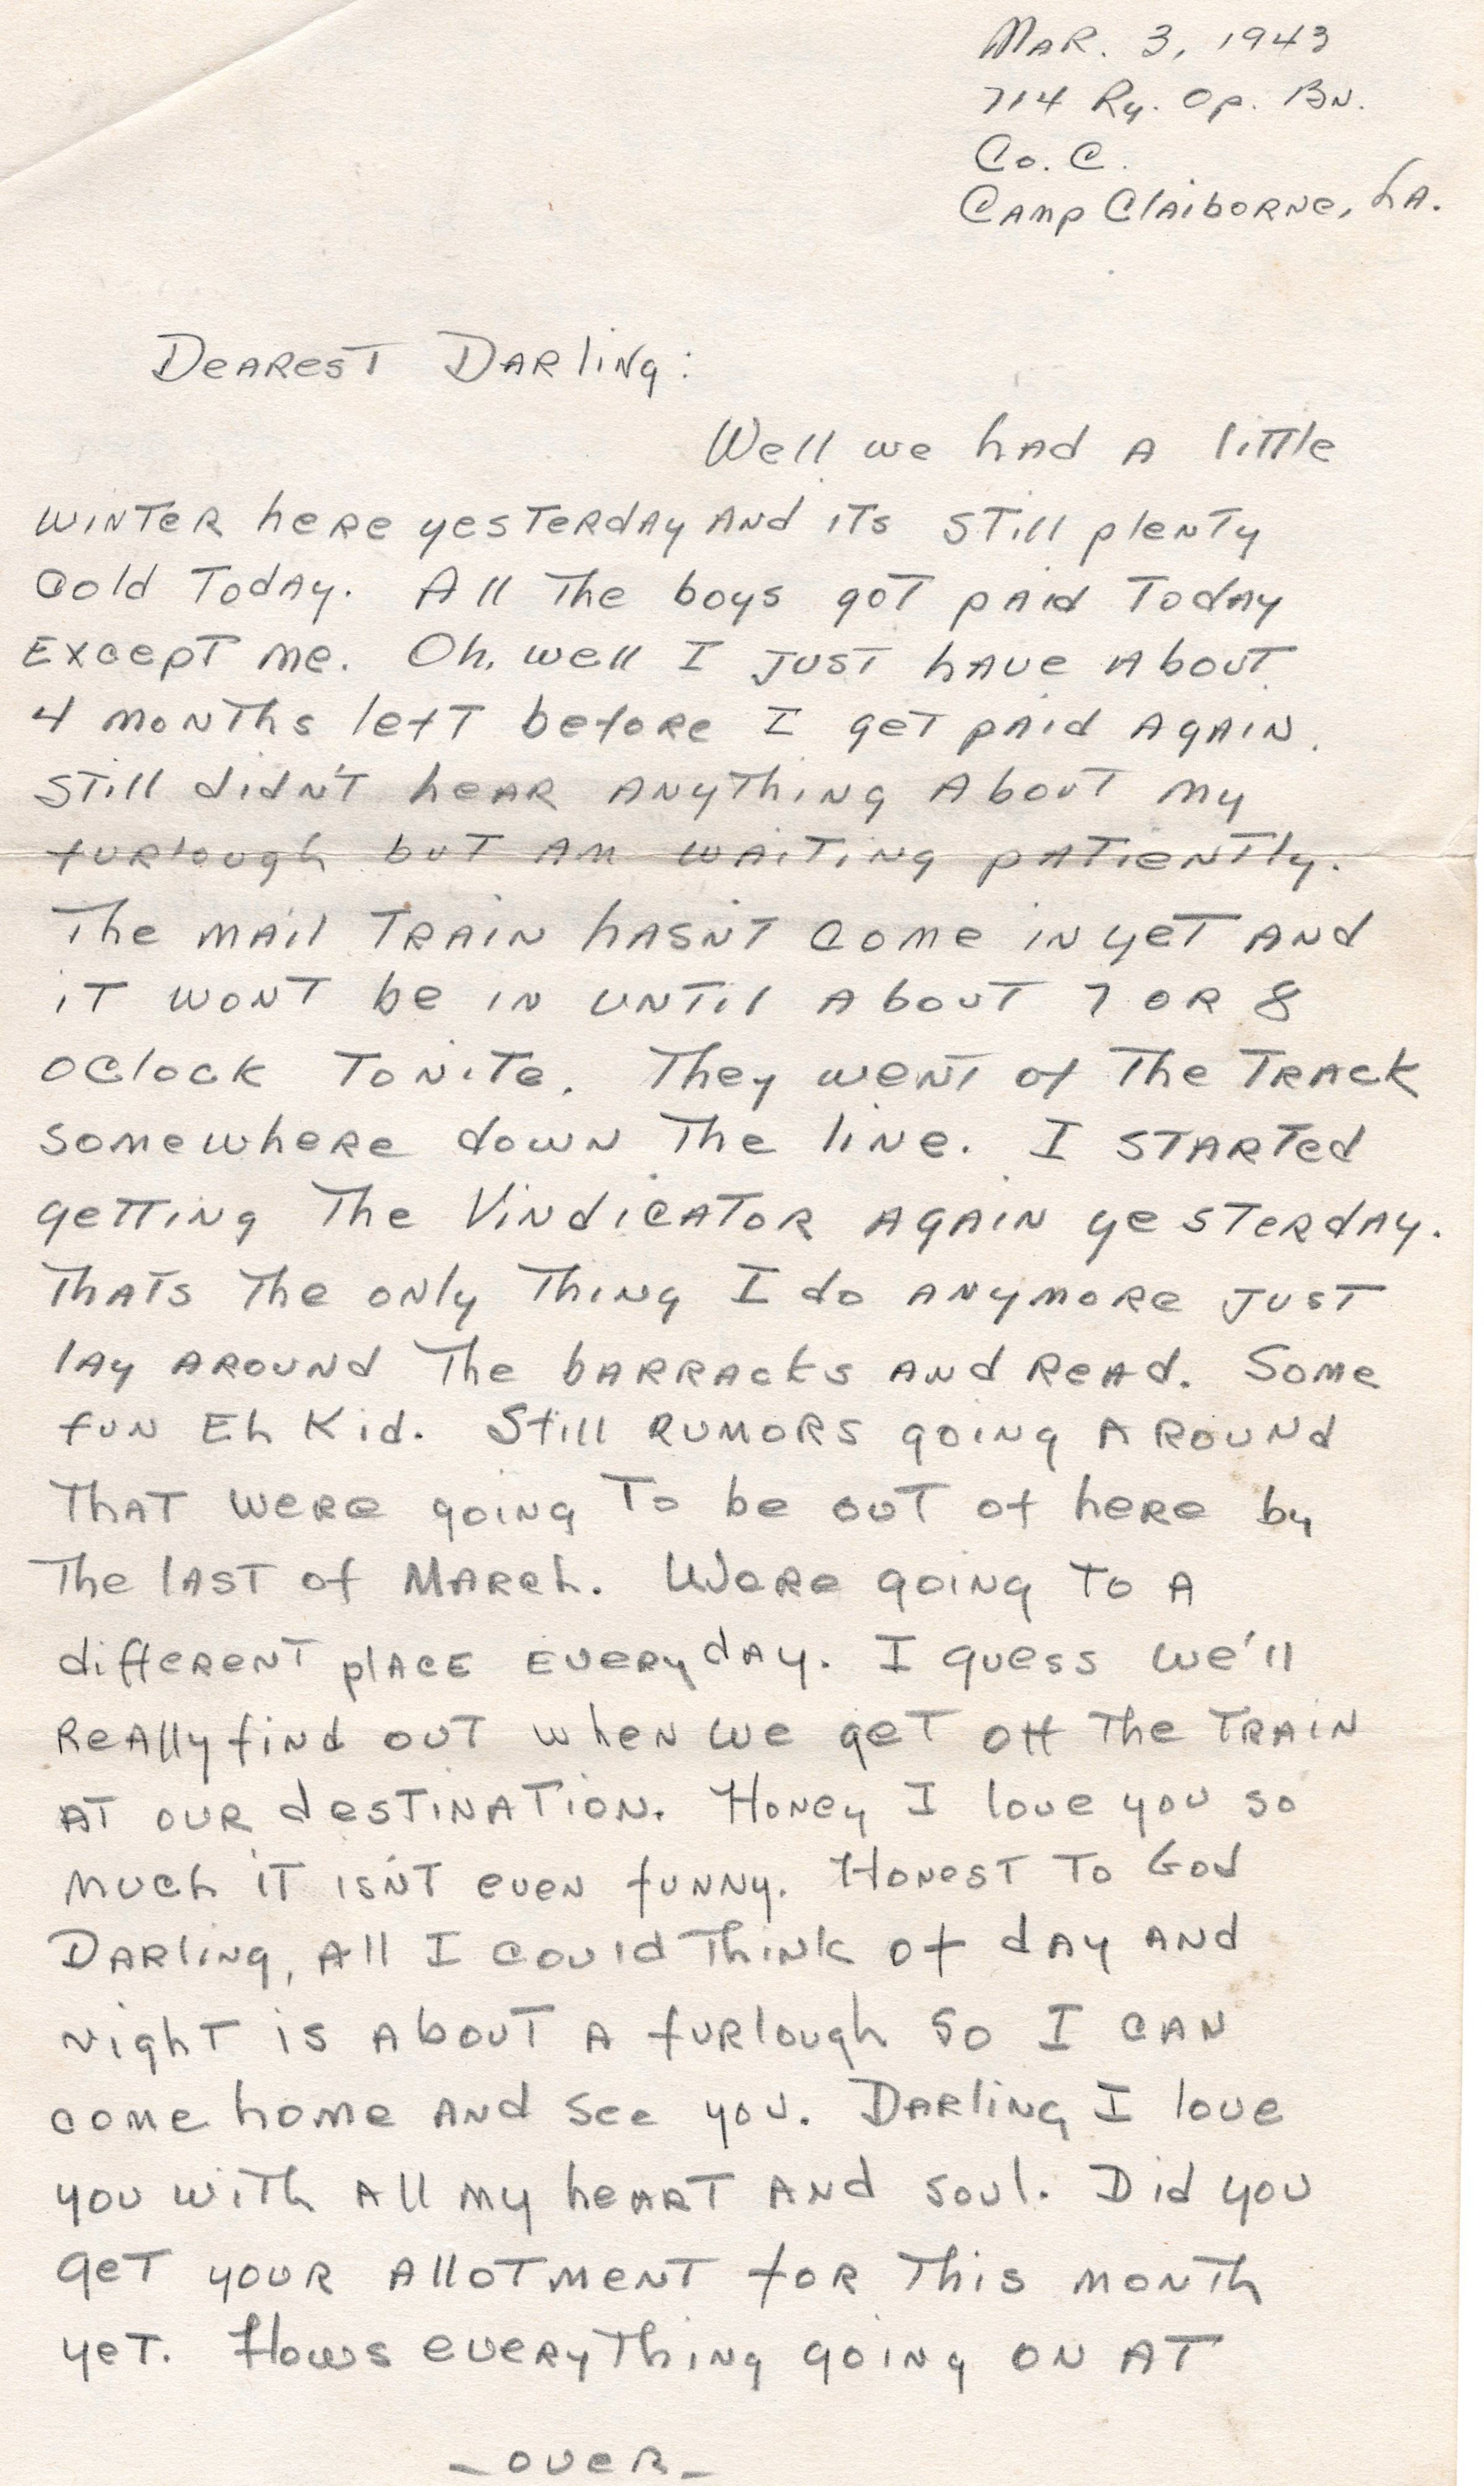 Mar. 3, 1943
714 Ry. Op. Bn.
Co. C.
Camp Claiborne, La.
Dearest Darling:
Well we had a little
winter here yesterday and its still plenty
cold today. All the boys got paid today
except me. Oh, well I just have about
4 months left before I get paid again.
Still didn't hear anything about my
furlough but am waiting patiently.
The mail train hasn't come in yet and
it wont be in until about 7 or 8
oclock tonite. They went of the track
somewhere down the line. I started
getting the Vindicator again yesterday.
Thats the only thing I do anymore just
lay around the barracks and read. Some
fun Eh Kid. Still rumors going around
that were going to be out of here by
the last of March. Were going to a
different place everyday. I guess we'll
really find out when we get off the train
at our destination. Honey I love you so
much it isn't even funny. Honest to God
Darling, all I could think of day and
night is about a furlough so I can
come home and see you. Darling I love
you with all my heart and soul. Did you
get your allotment for this month
yet. Hows everything going on at
- over -